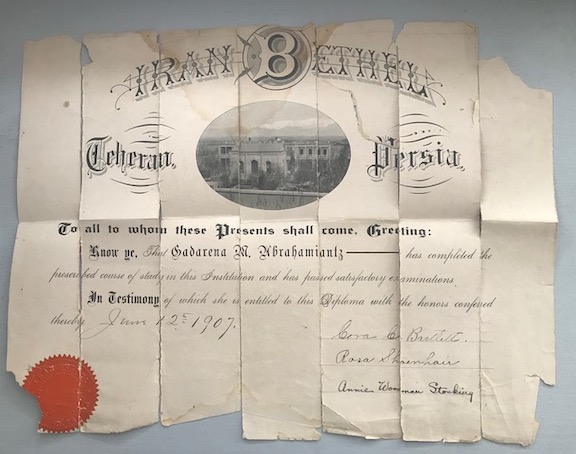 IRAN BETHEL
Teheran, Persia.
To all to whom these Presents shall come, Greeting:
Know ye, That Gadarena M. Abrahamiantz has completed the
prescribed course of study in this Institution and has passed satisfactory examinations.
In Testimony of which she is entitled to this Diploma with the honors conferred
thereby June 12th 1907.
Cora C. Bartlett.
Rosa Shoenhair
Annie Woodman Stocking